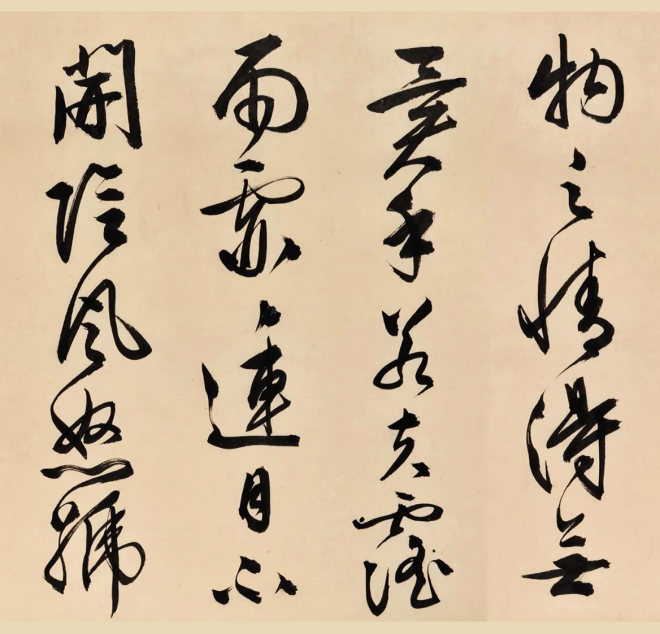 物之情得無
異乎若夫霪
雨霏〻連月不
開陰風怒號